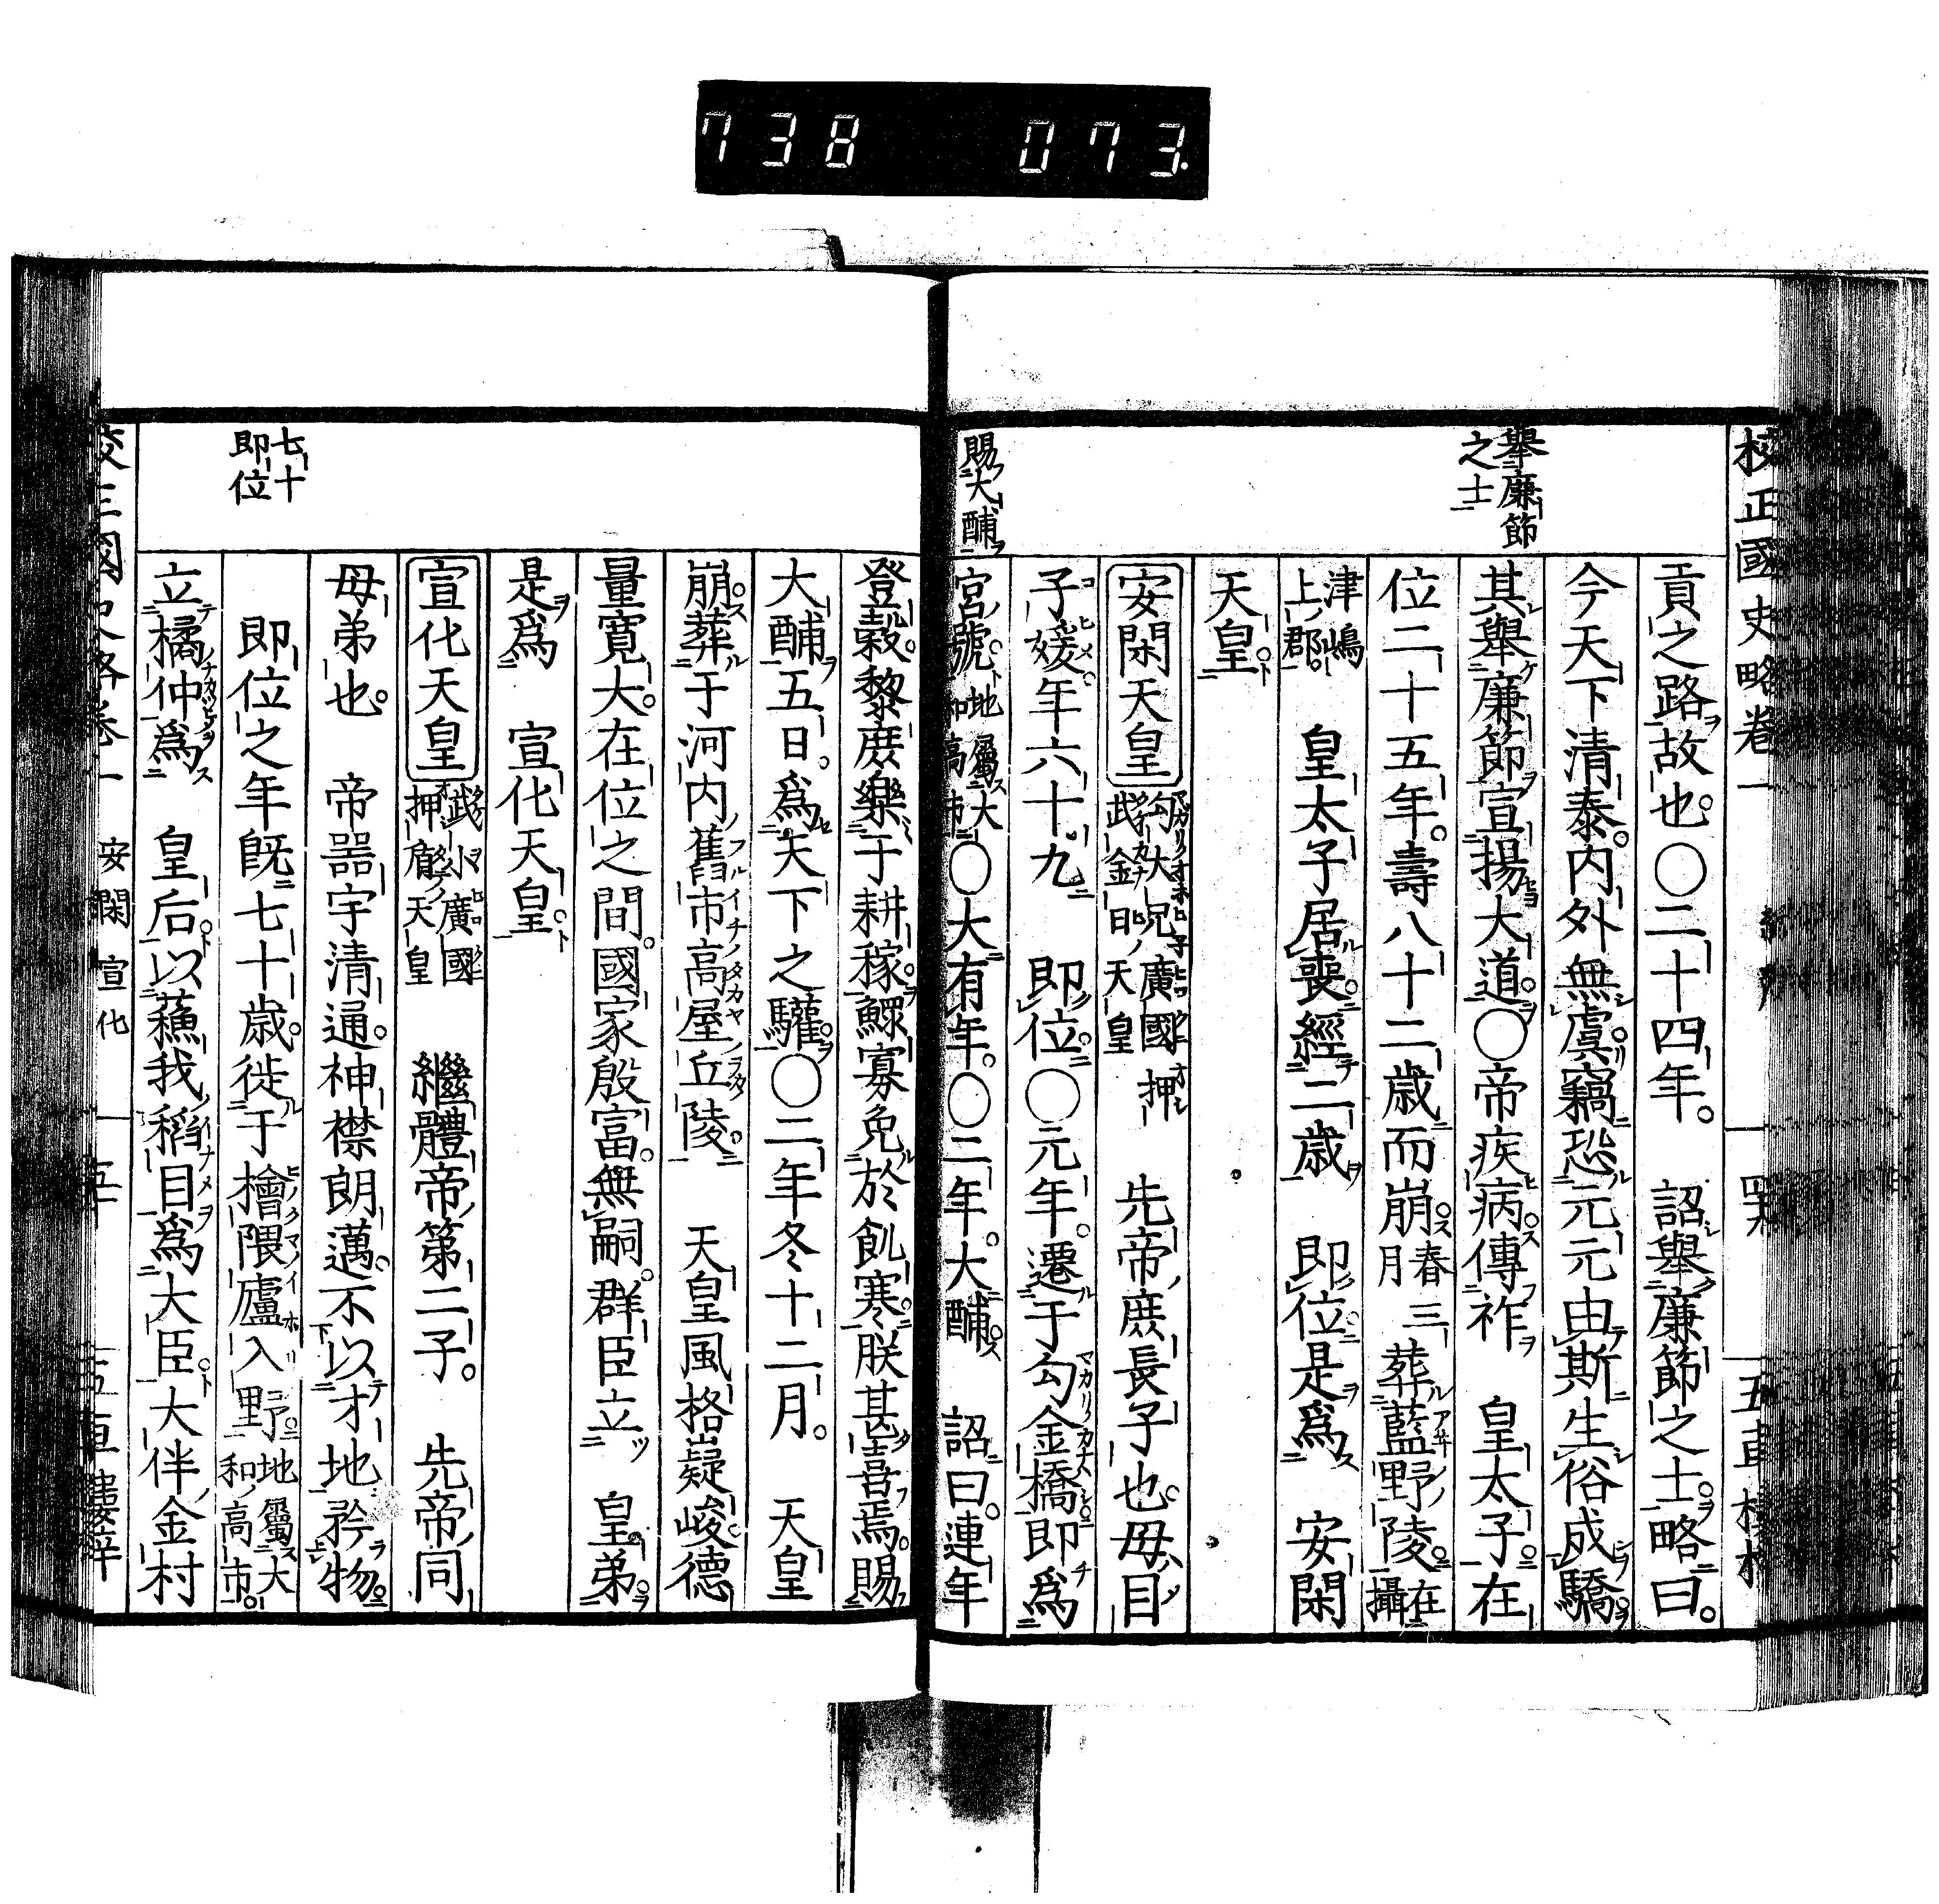 738 073.
校正國史略卷一
擧廉節
之士
賜大酺
貢之路故也○二十四年。 詔擧廉節之士略曰。
今天下清泰。内外無虞竊恐元元由斯生俗成驕
其擧廉節宣揚大道○帝疾病傳祚 皇太子在
位二十五年。壽八十二歳而崩春三月葬藍野陵在攝
津嶋上郡 皇太子居喪經二歳 即位是爲 安閑
天皇
安閑天皇 勾大兄廣國押武金日天皇 先帝庶長子也母目
子媛年六十九 即位○元年遷于勾金橋即爲
宮號地屬大和高市○大有年。○二年。大酺 詔曰。連年
登穀黎庶樂于耕稼鰥寡免於飢寒朕甚喜焉。賜
大酺五日。爲天下之驩○二年冬十二月。 天皇
崩葬于河内舊市高屋丘陵 天皇風格嶷峻德
量寛大。在位之間。國家殷富。無嗣。群臣立 皇弟
是爲 宣化天皇
宣化天皇 武小廣國押盾天皇 繼體帝第二子。 先帝同
母弟也。 帝器宇清通。神襟朗邁。不以才地矜物
即位之年既七十歳。徙于檜隈廬入野地屬大和高市
立橘仲爲 皇后以蘓我稻目爲大臣大伴金村
七十
即位
安閑 宣化